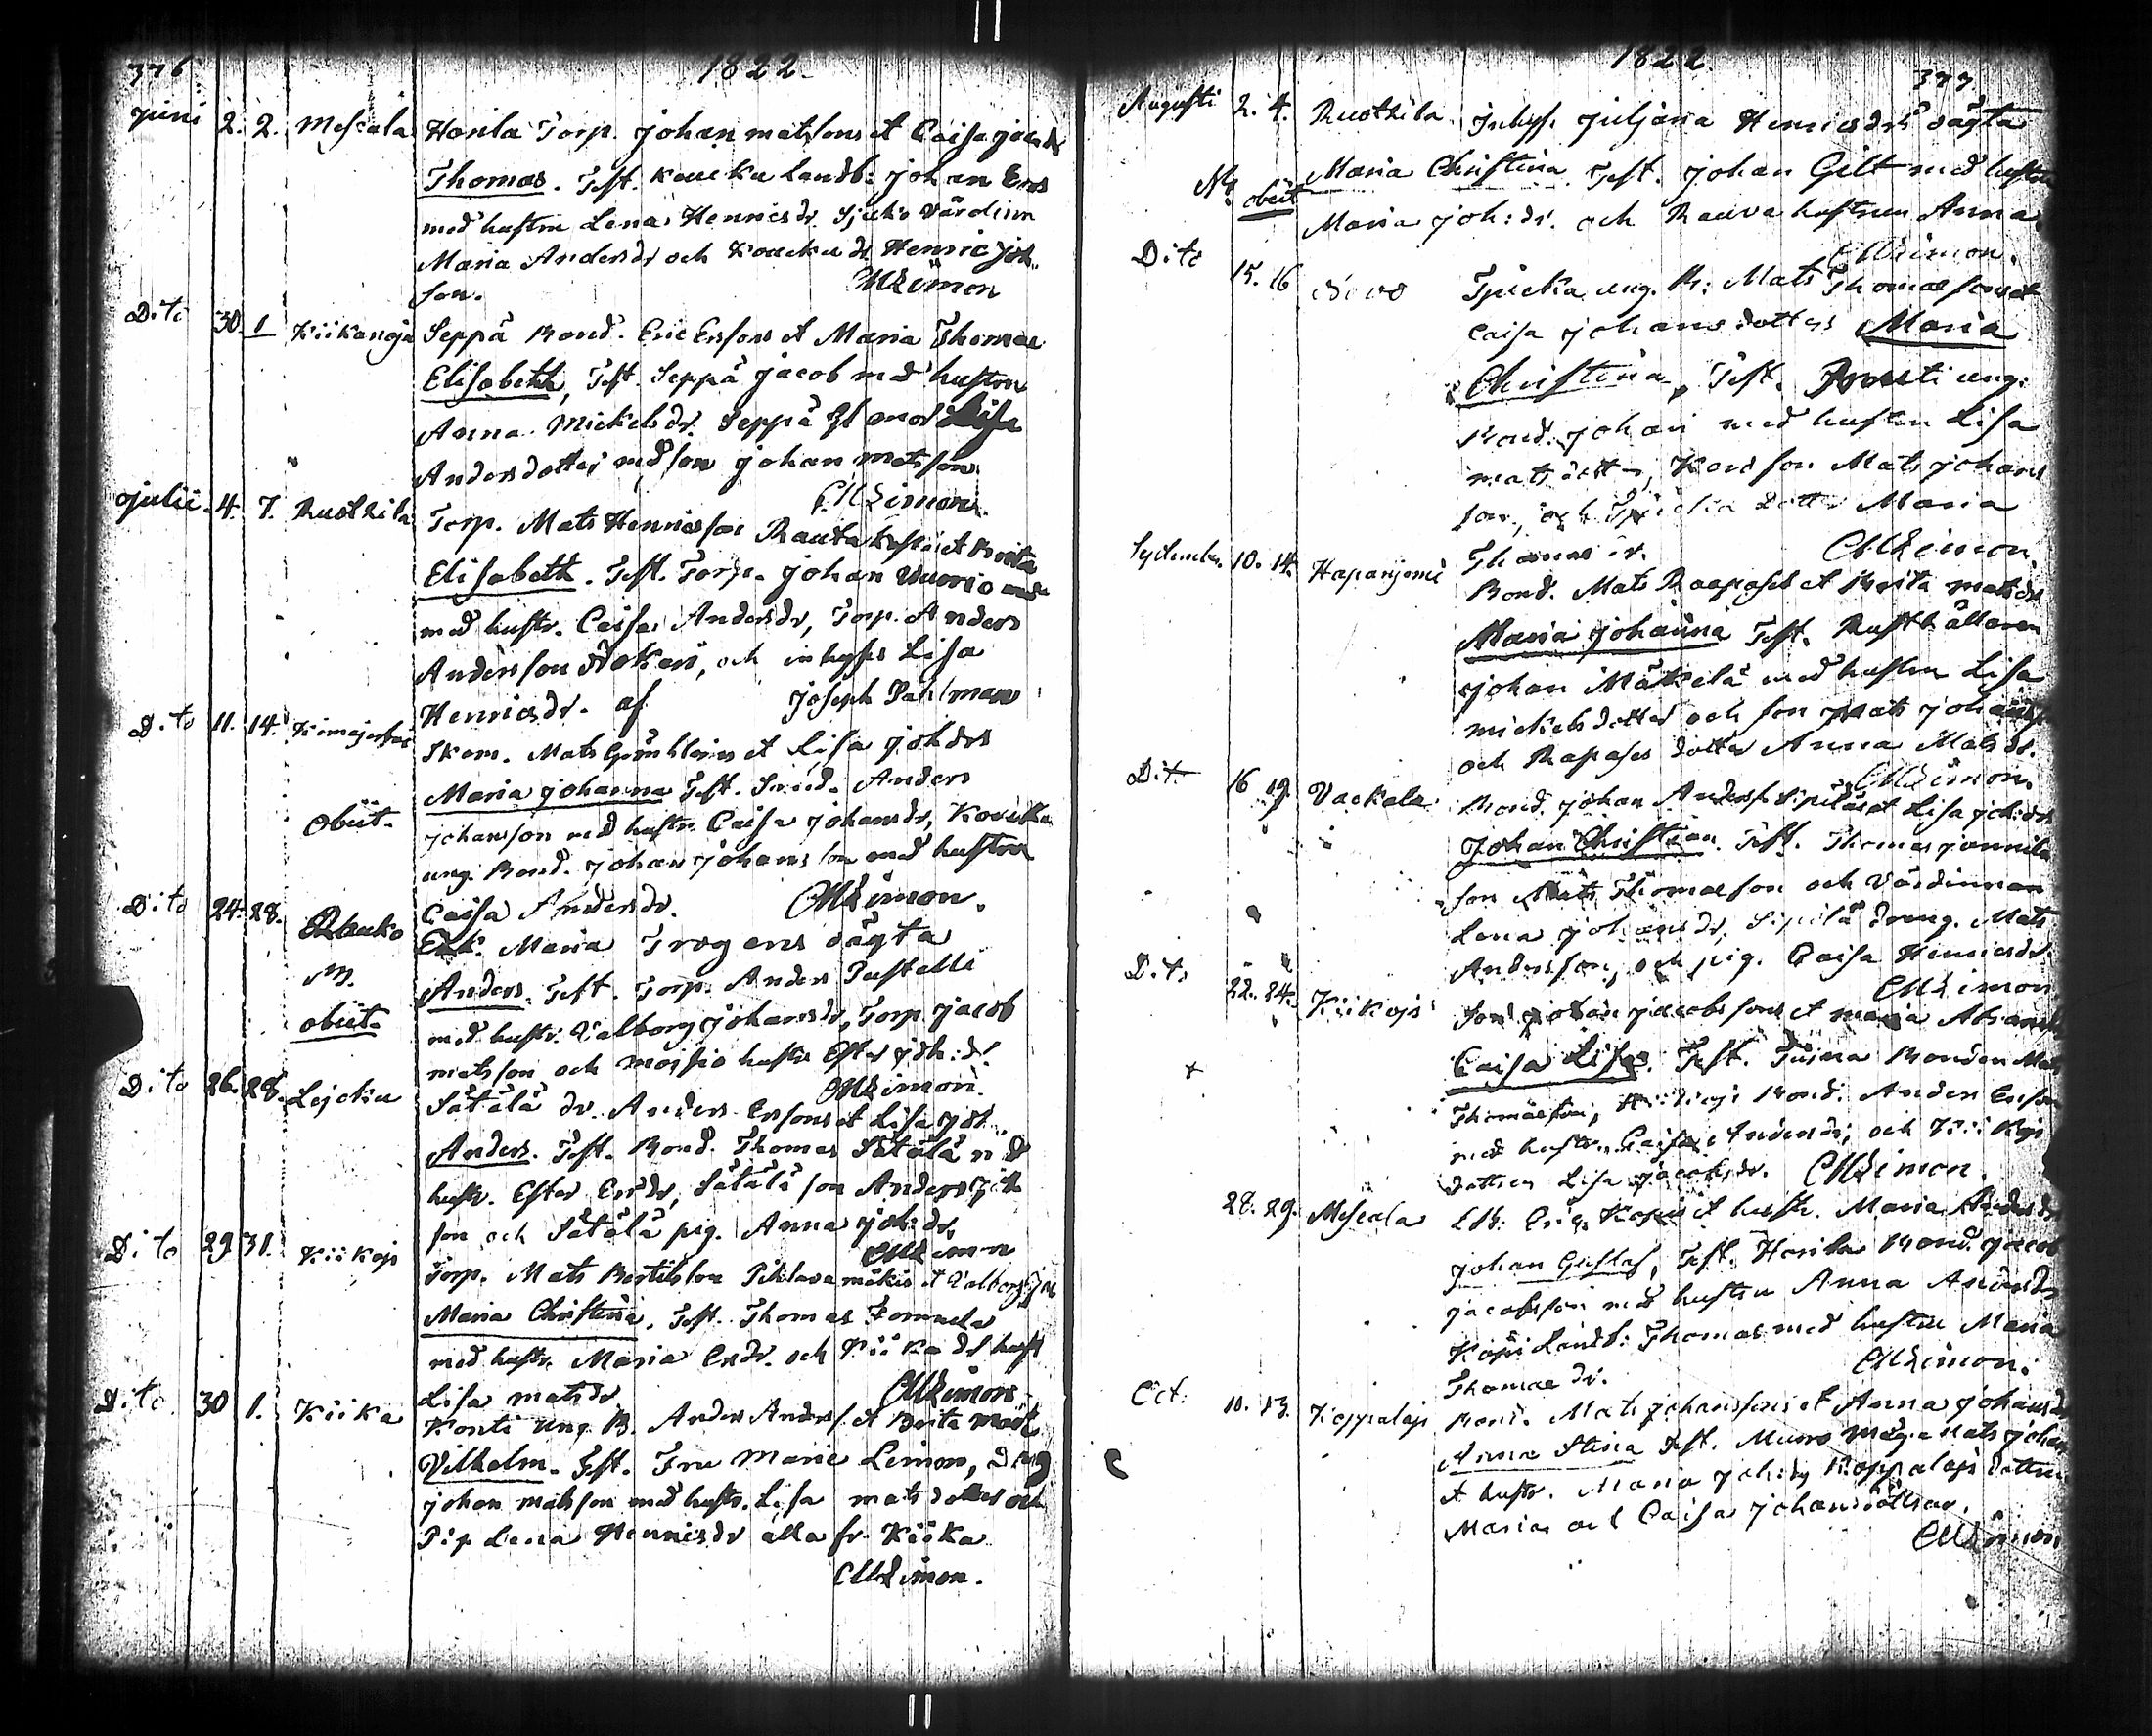 376
1822
Juni 2. 2. Mescala Honla Torp. Johan Matssons et Caisa Jac.dr
Thomas. Test. Kaucku Landb: Johan Ers
med hustru Lena Henricsdr Sjukö värdinn
Maria Andersdr och Kaucku dr Henric Joh.
son. CMLimon
Dito 30. 1 Kiikanoja Seppä Bond. Eric Erssons et Maria Thomae
Elisabeth, Test. Seppä Jacob med hustru
Anna Mickelsdr. Seppä Gl mor Lisa
Andersdotter med son Johan Matsson.
CMLimon.
Julii 4. 7. Rustkila Torp. Mats Henricsson Rauta et Brita
Elisabeth. Test. Torp. Johan Vuorio
med hustr. Caisa Andersdr, Torp. Anders
Andersson, och inhyss Lisa
Henricsdr. af Joseph Pahlman
Dito 11. 14. Skom. Mats Grönhlöms et Lisa Johdrs
Maria Johanna Test. Smed. Anders
Obiit. Johansson med hustr. Caisa Johansdr,
ung. Bond. Johan Johansson med hustru
Caisa Andersdr. CMLimon.
Dito 24. 28. Rauko Enk. Maria Trogens oägta
M. Anders. Test. Torp. Anders Pustelli
obiit. med hustr. Valborg Johansdr, Torp Jacob
Matsson och hustr Ester Joh:dr.
CMLimon.
Dito 26. 28. Lejcku Sätälä dr. Anders Erssons et Lisa Joh.
Anders. Test. Bond. Thomas Sätälä med
hustr. Ester Ersdr, Sätälä son Anders Joh
son och Sätälä pig. Anna Joh:dr.
CMLimon
Dito 29 31. Kiikojs Torp. Mats Bertilsson Pihlavamäkis et Valborg Joh
Maria Christina, Test. Thomas Tommila
med hustr. Maria Ersdr. och Kiika dr hust
Lisa Matsdr CMLimon
Dito 30 1. Kiika Konti ung B. Anders Anders. et Brita Mats
Vilhelm. Test. Fru Marie Limon, dräng
Johan Matsson med hustr. Lisa Matsdotter och
Pig Lena Henricsdr alla fr. Kiika
CMLimon.
1822.
377.
Augusti 2. 4. Rustkila. Inhys. Juljana Henricsdrs oägta
Maria Christina. Test. Johan Gilt med hustru
obiit Maria Joh:dr. och Rauva hustrun Anna.
CMLimon.
Dito 15. 16 ung. B: Mats Thomaesons et
Caisa Johansdotters Maria
Christina, Test. ung:
Bond. Johan med hustru Lisa
Matsdotter, son Mats Johans
son, och dotter Maria
Thomae dr. CMLimon.
September 10. 14. Haparjemi Bond. Mats Raapases et Brita Matsdr
Maria Johanna Test. Rusthållaren
Johan Mäkelä med hustru Lisa
Mickelsdotter och son Mats Johanss
och Rapases dotter Anna Matsdr.
CMLimon.
Dito 16 19. Vackala Bond. Johan Anderss. Sipiläs et Lisa Joh:drs
Johan Christian. Test. Thomas
son Mats Thomaeson och värdinnan
Lena Johansdr, Sipilä dreng. Mats
Andersson, och pig. Caisa Henricsdr.
CMLimon
Dito 22. 24. Kiikojs Johan Jacobssons et Maria Abrams
Caisa Lisa. Test. Bonden Mats
Thomaeson, Bond. Anders Ersson
med hustr. Caisa Andersdr, och Kiikojs
dottren Lisa Jacobsdr. CMLimon.
28. 29. Mescala Ldb: Eric Kopis et hustr. Maria Andersdr
Johan Gustaf, Test. Honla Bond. Jacob
Jacobsson med hustru Anna Andersdr
Kopis Landb: Thomas med hustru Maria
Thomae dr. CMLimon.
Oct: 10. 13. Koppaloja Bond. Mats Johanssons et Anna Johansdr
Anna Stina Test. Muuro måg Mats Johan
et hustr. Maria Joh:dr, Koppalojs dottren
Maria och Caisa Johansdöttrar.
CMLimon